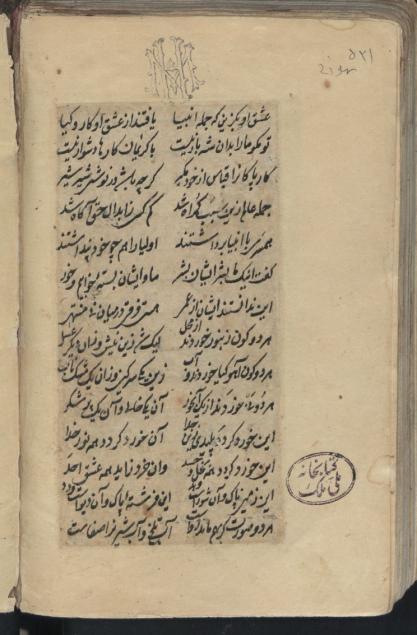 ۵۲۱
عشق او بگزین که جمله انبیا یافتند از عشق او کار و کیا
تو مگو ما را بدان شه بار نیست با کریمان کارها دشوار نیست
کار پاکان را قیاس از خود مگیر گرچه باشد در نوشتن شیر شیر
جمله عالم زین سبب گمراه شد کم کسی ز ابدال حق آگاه شد
همسری با انبیا برداشتند اولیا را هم چو خود پنداشتند
گفت اینک ما بشر ایشان بشر ما و ایشان بسته خوابیم و خور
این ندانستند ایشان از عمی هست فرقی درمیان
هر دو گون زنبور خوردند از محل لیک شد زین نیش و زان دیگر عسل
هر دو گون آهو گیا خوردند و آب زین یکی سرگین و زان یک مشک ناب
هر دو نی خوردند از یک آبخور آن یکی خالی و آن یک پر شکر
این خورد گردد پلیدی زو جدا آن خورد گردد همه نور خدا
این خورد زاید همه بخل و حسد وان خورد زاید همه عشق احد
این زمین پاک و آن شورست و بد این فرشته پاک و آن دیوست و دد
هر دو صورت گر بهم ماند رواست آب تلخ و آب شیرین را صفاست
کتابخانه
ملی ملک